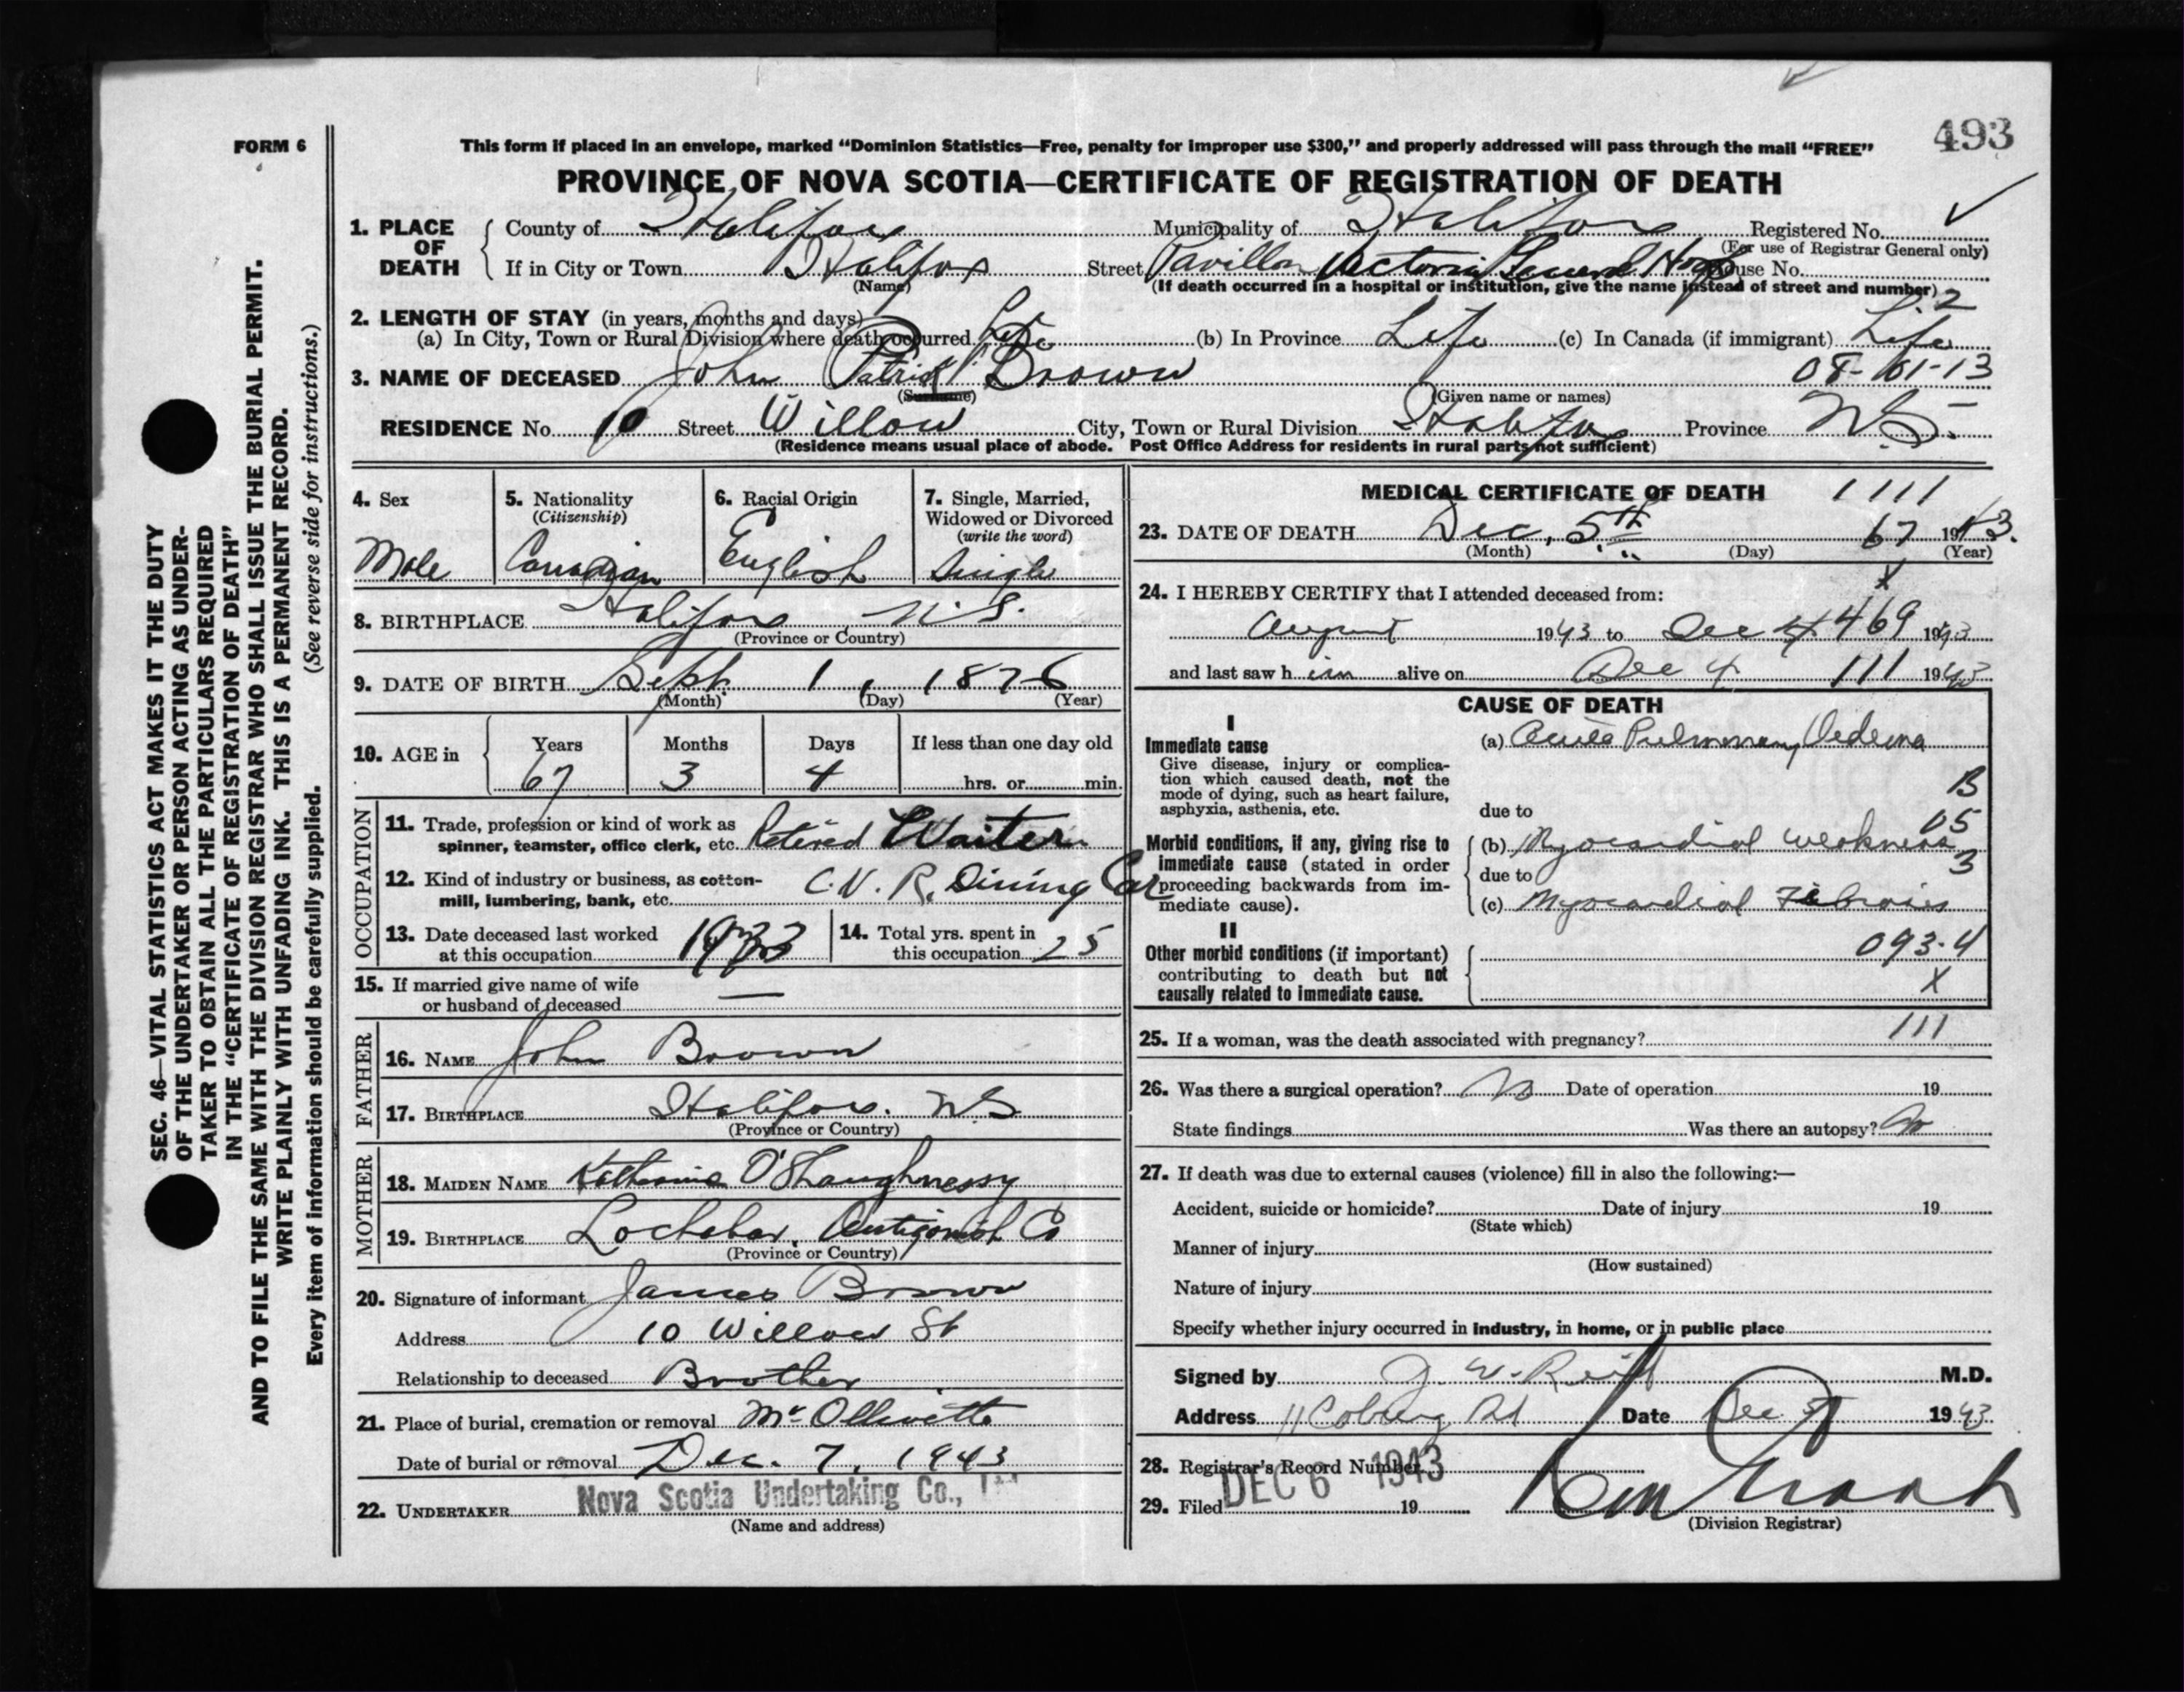 493
FORM 6
This form if placed in an envelope, marked “Dominion Statistics—Free, penalty for improper use $300,” and properly addressed will pass through the mail “FREE”
PROVINCE OF NOVA SCOTIA—CERTIFICATE OF REGISTRATION OF DEATH
1. PLACE OF DEATH
County of Halifax Municipality of Halifax Registered No.
(For use of Registrar General only)
If in City or Town Halifax Street Pavillon Victoria General Hosp House No.
(Name) (If death occurred in a hospital or institution, give the name instead of street and number)
2
2. LENGTH OF STAY (in years, months and days)
(a) In City, Town or Rural Division where death occurred Life (b) In Province Life (c) In Canada (if immigrant) Life
3. NAME OF DECEASED John Patrick Brown 08-101-13
(Surname) (Given name or names)
RESIDENCE No. 10 Street Willow City, Town or Rural Division Halifax Province N.S.
(Residence means usual place of abode. Post Office Address for residents in rural parts not sufficient)
4. Sex
Male
5. Nationality
(Citizenship)
Canadian
6. Racial Origin
English
7. Single, Married,
Widowed or Divorced
(write the word)
Single
8. BIRTHPLACE Halifax N.S.
(Province or Country)
9. DATE OF BIRTH Sept. 1, 1876
(Month) (Day) (Year)
10. AGE in
Years Months Days If less than one day old
67 3 4 hrs. or min.
OCCUPATION
11. Trade, profession or kind of work as
spinner, teamster, office clerk, etc. Retired Waiter
12. Kind of industry or business, as cotton-
mill, lumbering, bank, etc. C.N.R. Dining Car
13. Date deceased last worked
at this occupation 1933
14. Total yrs. spent in
this occupation 25
15. If married give name of wife
or husband of deceased —
FATHER
16. NAME John Brown
17. BIRTHPLACE Halifax. N.S.
(Province or Country)
MOTHER
18. MAIDEN NAME Katherine O'Shaughnessy
19. BIRTHPLACE Lochaber, Antigonish Co
(Province or Country)
20. Signature of informant James Brown
Address 10 Willow St
Relationship to deceased Brother
21. Place of burial, cremation or removal Mt Ollivette
Date of burial or removal Dec. 7, 1943
22. UNDERTAKER Nova Scotia Undertaking Co.,
(Name and address)
MEDICAL CERTIFICATE OF DEATH 1111
23. DATE OF DEATH Dec, 5th 67 1943.
(Month) (Day) (Year)
X
24. I HEREBY CERTIFY that I attended deceased from:
August 1943 to Dec 4 469 1943
and last saw him alive on Dec 4 111 1943
CAUSE OF DEATH
I
Immediate cause
Give disease, injury or complica-
tion which caused death, not the
mode of dying, such as heart failure,
asphyxia, asthenia, etc.
(a) Acute Pulmonary Oedema
B
due to
05
Morbid conditions, if any, giving rise to
immediate cause (stated in order
proceeding backwards from im-
mediate cause).
(b) Myocardial weakness
due to 3
(c) Myocardial Fibrosis
II
Other morbid conditions (if important)
contributing to death but not
causally related to immediate cause.
093·4
X
111
25. If a woman, was the death associated with pregnancy?
26. Was there a surgical operation? No Date of operation 19
State findings Was there an autopsy? No
27. If death was due to external causes (violence) fill in also the following:—
Accident, suicide or homicide? Date of injury 19
(State which)
Manner of injury
(How sustained)
Nature of injury
Specify whether injury occurred in industry, in home, or in public place
Signed by J. W. Reid M.D.
Address 11 Coburg Rd Date Dec 1943
28. Registrar's Record Number
DEC 6 1943
29. Filed 19
(Division Registrar)
SEC. 46—VITAL STATISTICS ACT MAKES IT THE DUTY
OF THE UNDERTAKER OR PERSON ACTING AS UNDER-
TAKER TO OBTAIN ALL THE PARTICULARS REQUIRED
IN THE “CERTIFICATE OF REGISTRATION OF DEATH”
AND TO FILE THE SAME WITH THE DIVISION REGISTRAR WHO SHALL ISSUE THE BURIAL PERMIT.
WRITE PLAINLY WITH UNFADING INK. THIS IS A PERMANENT RECORD.
Every item of information should be carefully supplied. (See reverse side for instructions.)